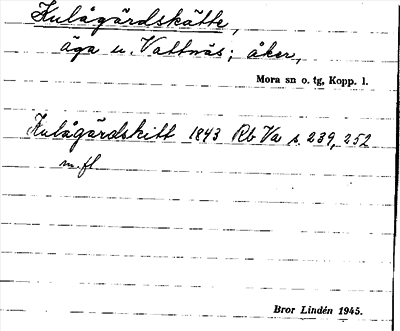 Kulågärdskätte,
äga u. Vattnäs; åker,
Mora sn o. tg, Kopp. l.
Kulågärdskitt 1843 Rb Va s. 239, 252
m.fl.
Bror Lindén 1945.